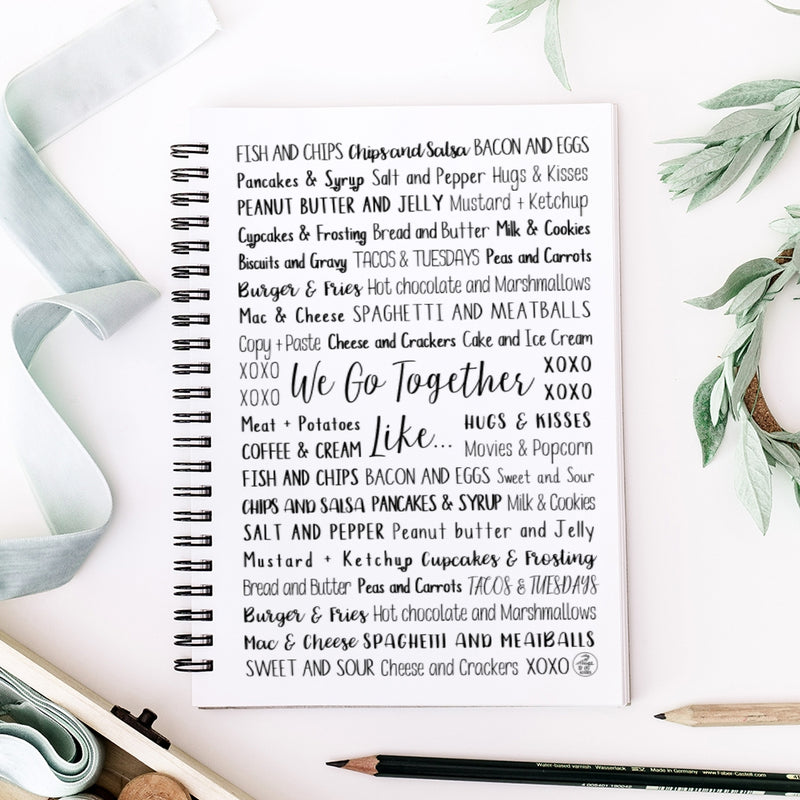 FISH AND CHIPS Chips and Salsa BACON AND EGGS
Pancakes & Syrup Salt and Pepper Hugs & Kisses
PEANUT BUTTER AND JELLY Mustard + Ketchup
Cupcakes & Frosting Bread and Butter Milk & Cookies
Biscuits and Gravy TACOS & TUESDAYS Peas and Carrots
Burger & Fries Hot chocolate and Marshmallows
Mac & Cheese SPAGHETTI AND MEATBALLS
Copy + Paste Cheese and Crackers Cake and Ice Cream
XOXO XOXO
We Go Together
XOXO XOXO
Meat + Potatoes HUGS & KISSES
Like...
COFFEE & CREAM Movies & Popcorn
FISH AND CHIPS BACON AND EGGS Sweet and Sour
CHIPS AND SALSA PANCAKES & SYRUP Milk & Cookies
SALT AND PEPPER Peanut butter and Jelly
Mustard + Ketchup Cupcakes & Frosting
Bread and Butter Peas and Carrots TACOS & TUESDAYS
Burger & Fries Hot chocolate and Marshmallows
Mac & Cheese SPAGHETTI AND MEATBALLS
SWEET AND SOUR Cheese and Crackers XOXO
Water-based varnish Wasserlack Made in Germany www.Faber-Castell.com